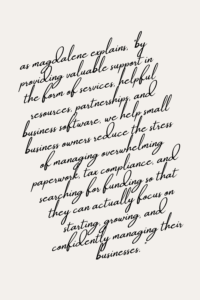 as magdalene explains, by
providing valuable support in
the form of services, helpful
resources, partnerships, and
business software, we help small
business owners reduce the stress
of managing overwhelming
paperwork, tax compliance, and
searching for funding so that
they can actually focus on
starting, growing, and
confidently managing their
businesses.